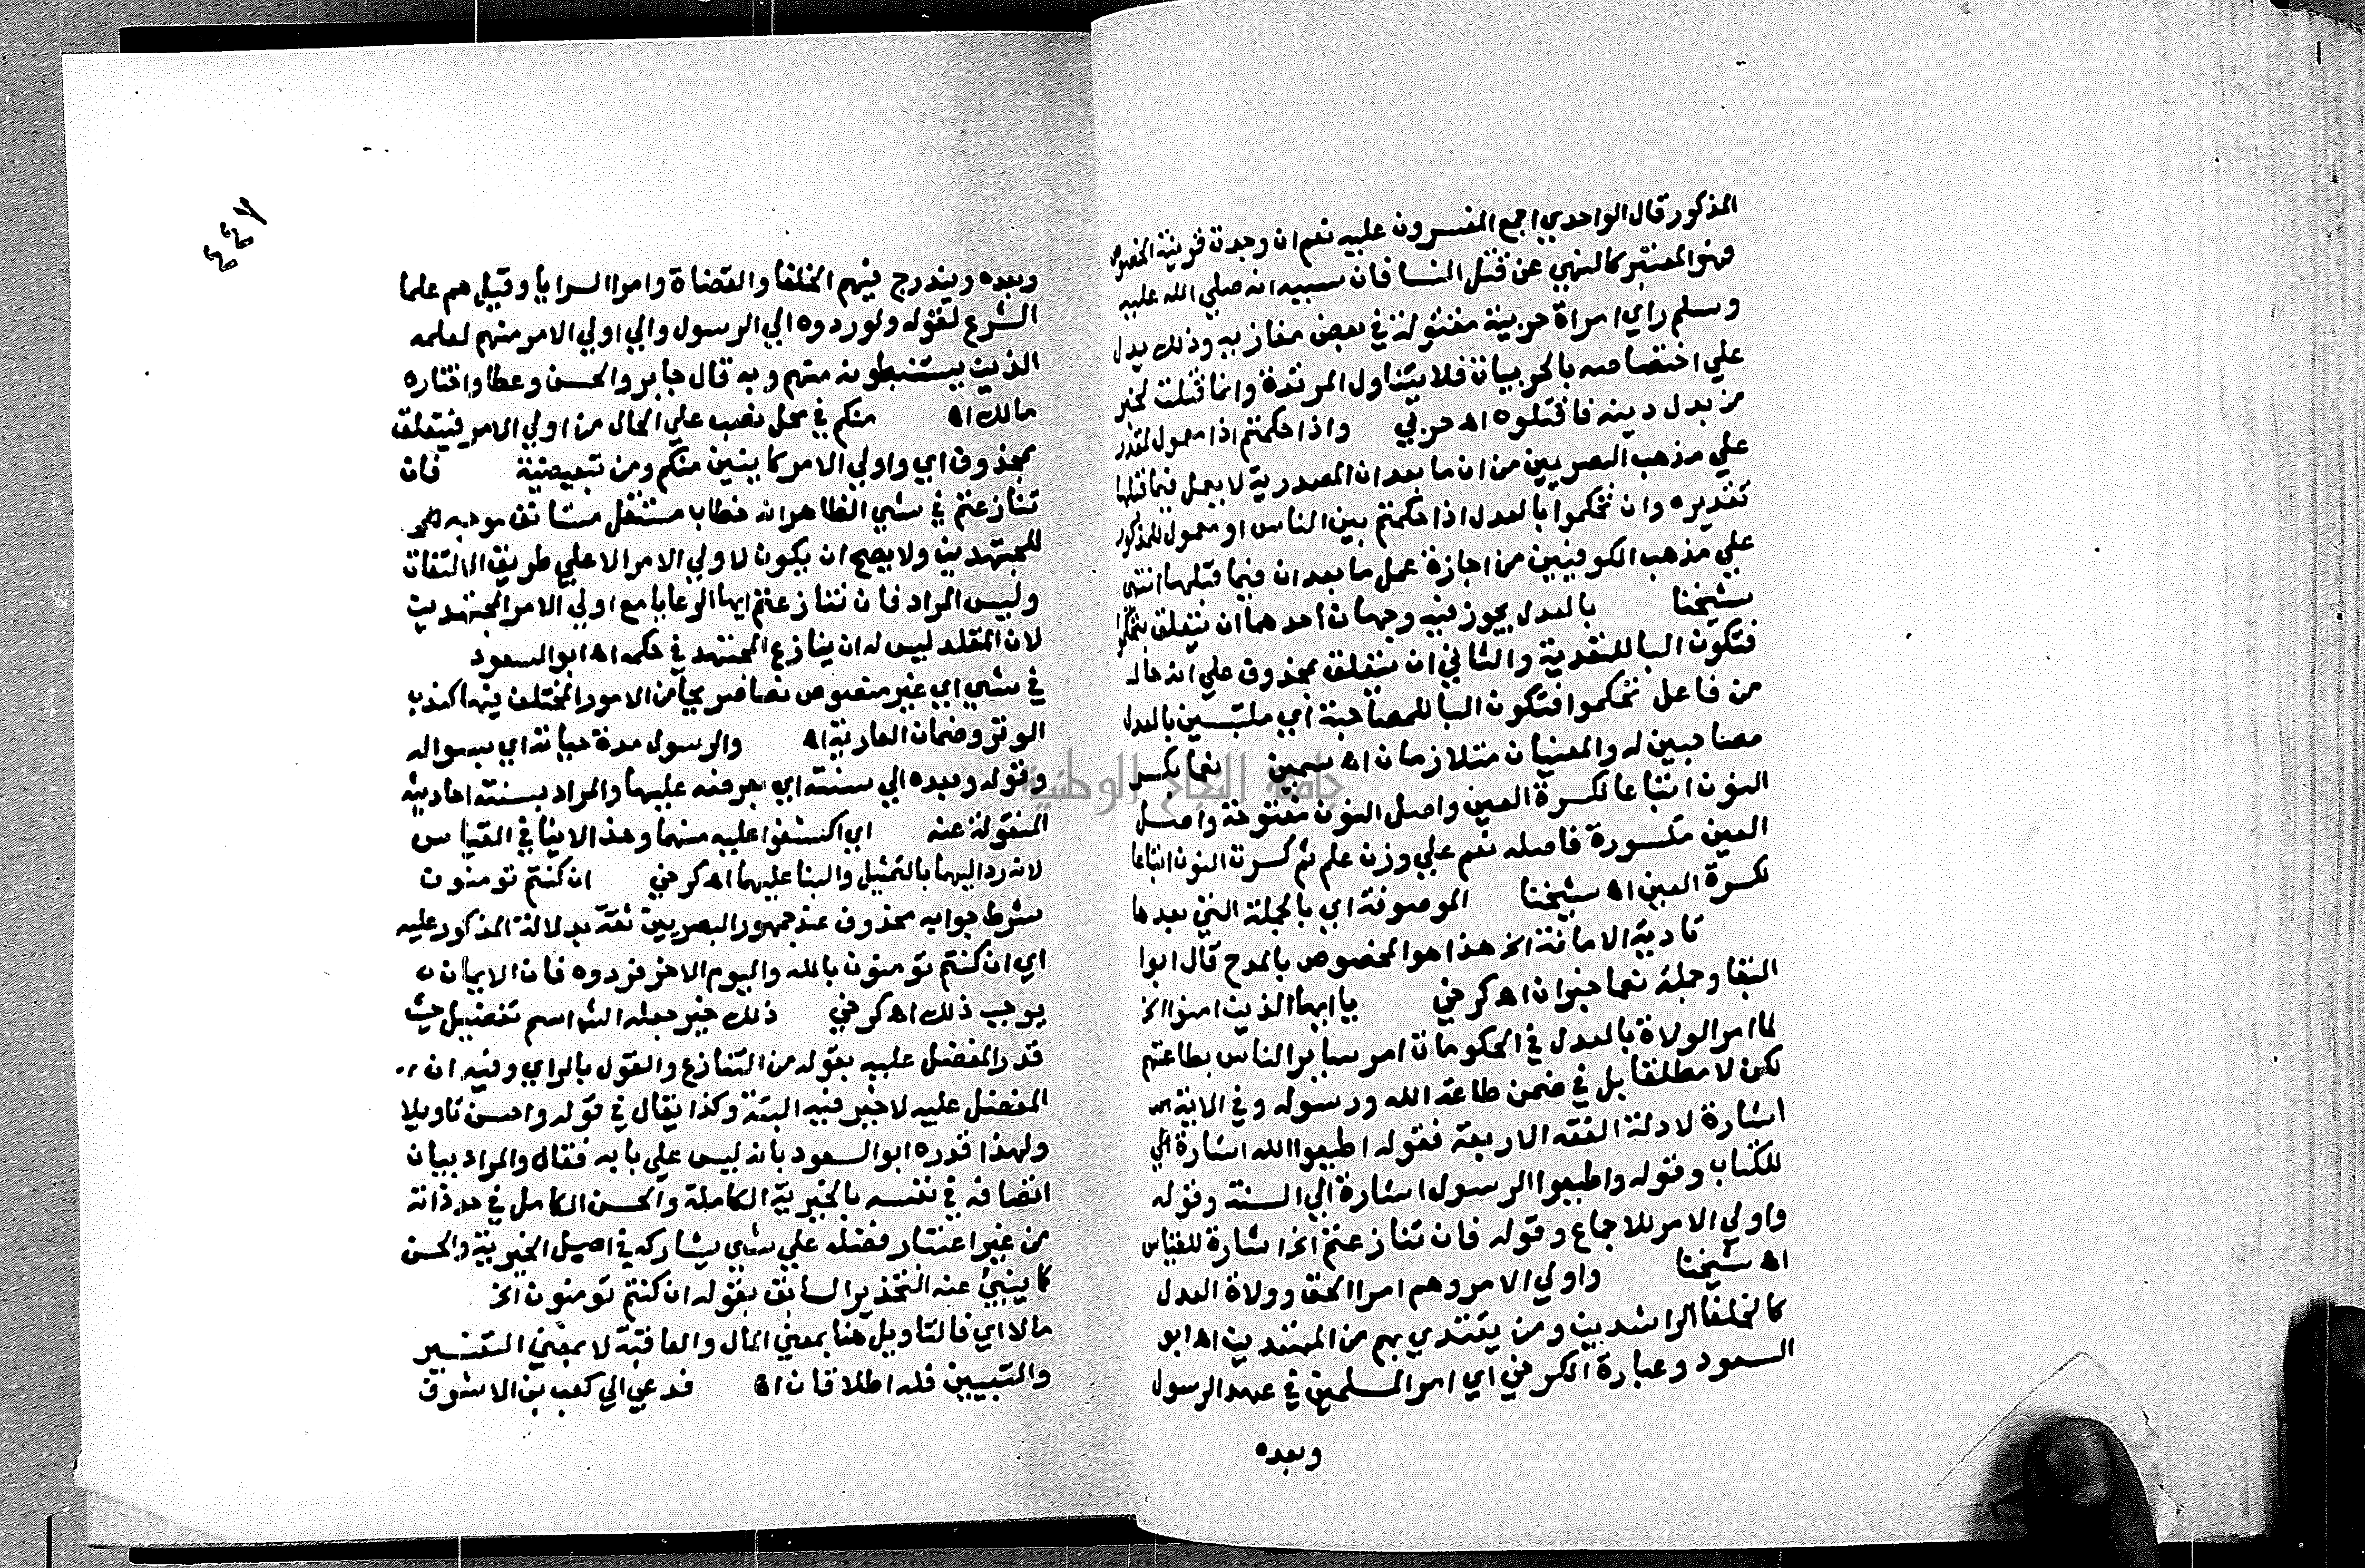 المذكور قال الواحدي اجمع المفسرون عليه نعم ان وجدت قرينة الخصوص
فهو المعتبر كالنهي عن قتل النسا فان سببه انه صلي الله عليه
وسلم راي امراة حربية مقتولة في بعض مغازيه وذلك يدل
علي اختصاصه بالحربيات فلا يتناول المرتدة وانما قتلت لخبر
من بدل دينه فاقتلوه اه حربي واذا حكمتم اذا معمول لمقدر
علي مذهب البصريين من ان ما بعد ان المصدرية لا يعمل فيما قبلها
تقديره وان تحكموا بالعدل اذا حكمتم بين الناس او معمول للمذكور
علي مذهب الكوفيين من اجازة عمل ما بعد ان فيما قبلها انتهي
شيخنا بالعدل يجوز فيه وجهان احدهما ان يتعلق بتحكموا
فتكون البا للتعدية والثاني ان تتعلق بمحذوف علي انه حال
من فاعل تحكموا فتكون البا للمصاحبة اي ملتبسين بالعدل
مصاحبين له والمعنيان متلازمان اه سمين نعما بكسر
النون اتباعا لكسرة العين واصل النون مفتوحة واصل
العين مكسورة فاصله نعم علي وزن علم ثم كسرت النون اتباعا
لكسرة العين اه شيخنا الموصوفة اي بالجملة التي بعدها
تادية الامانة الخ هذا هو المخصوص بالمدح قال ابوا
البقا وجملة نعما خبر ان اه كرخي يا ايها الذين امنوا الخ
لما امر الولاة بالعدل في الحكومات امر ساير الناس بطاعتهم
لكن لا مطلقا بل في ضمن طاعة الله ورسوله وفي الاية
اشارة لادلة الفقه الاربعة فقوله اطيعوا الله اشارة الي
للكتاب وقوله واطيعوا الرسول اشارة الي السنة وقوله
واولي الامر للاجماع وقوله فان تنازعتم الخ اشارة للقياس
اه شيخنا واولي الامر وهم امرا الحق وولاة العدل
كالخلفا الراشدين ومن يقتدي بهم من المهتدين اه ابو
السعود وعبارة الكرخي اي امرا المسلمين في عهد الرسول
وبعده
٤٤٧
وبعده ويندرج فيهم الخلفا والقضاة وامرا السرايا وقيل هم علما
الشرع لقوله ولو ردوه الي الرسول والي اولي الامر منهم لعلمه
الذين يستنبطونه منهم وبه قال جابر والحسن وعطا واختاره
مالك اه منكم في محل نصب علي الحال من اولي الامر فيتعلق
بمحذوف اي واولي الامر كاينين منكم ومن تبعيضية فان
تنازعتم في شي الظاهر انه خطاب مستقل مستانف موجه
للمجتهدين ولا يصح ان يكون لاولي الامر الا علي طريق الالتفات
وليس المراد فان تنازعتم ايها الرعايا مع اولي الامر المجتهدين
لان المقلد ليس له ان ينازع المجتهد في حكمه اه ابو السعود
في شي اي غير منصوص نصا صريحا من الامور المختلف فيها كندب
الوتر وضمان العارية اه والرسول مدة حياته اي بسواله
وقوله وبعده الي سنته اي بعرفه عليها والمراد بسنته احاديثه
المنقولة عنه اي اكشفوا عليه منهما وهذا لا ينافي القياس
لانه رد اليهما بالتمثيل والبنا عليهما اه كرخي ان كنتم تومنون
شرط جوابه محذوف عند جمهور البصريين ثقة بدلالة المذكور عليه
اي ان كنتم تومنون بالله واليوم الاخر فردوه فان الايمان
يوجب ذلك اه كرخي ذلك خير جعله الش اسم تفضيل حيث
قدر المفضل عليه بقوله من التنازع والقول بالراي وفيه ان
المفضل عليه لا خير فيه البتة وكذا يقال في قوله واحسن تاويلا
ولهذا قدره ابو السعود بانه ليس علي بابه فقال والمراد بيان
اتصافه في نفسه بالخيرية الكاملة والحسن الكامل في حد ذاته
من غير اعتبار فضله علي شي يشاركه في اصل الخيرية والحسن
كما ينبئ عنه التحذير السابق بقوله ان كنتم تومنون الخ
مالا اي فالتاويل هنا بمعني المال والعاقبة لا بمعني التفسير
والتبيين فله اطلاقان اه فدعي الي كعب بن الاشرف
جامعة النجاح الوطنية